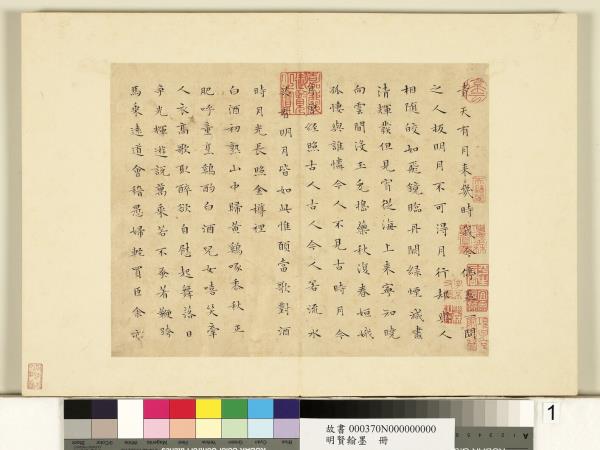 青天有月來幾時我今停盃一問
之人扳明月不可得月行却與人
相隨皎如飛鏡臨丹闕綠煙滅盡
清輝發但見宵從海上來寧知曉
向雲間沒玉兔搗藥秋復春姮娥
孤悽與誰憐今人不見古時月今
月曾經照古人古人今人若流水
共看明月皆如此惟願當歌對酒
時月光長照金樽裡
白酒初熟山中歸黃鷄啄黍秋正
肥呼童烹鷄酌白酒兒女嘻笑牽
人衣高歌取醉欲自慰起舞落日
爭光輝遊說萬乘苦不蚤著鞭跨
馬乘遠道會稽愚婦輕買臣余亦
故書 000370N000000000
明賢翰墨 冊
1